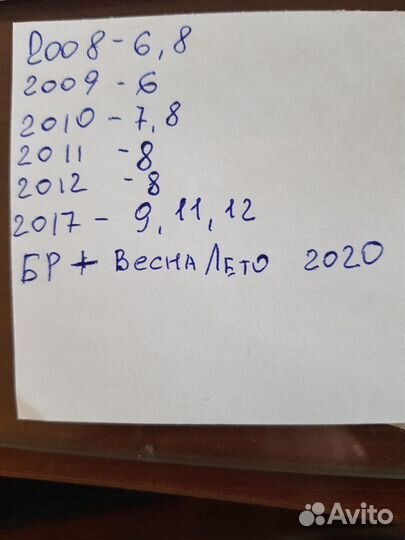 2008 - 6, 8
2009 - 6
2010 - 7, 8
2011 - 8
2012 - 8
2017 - 9, 11, 12
БР + ВЕСНА/ЛЕТО 2020
Avito